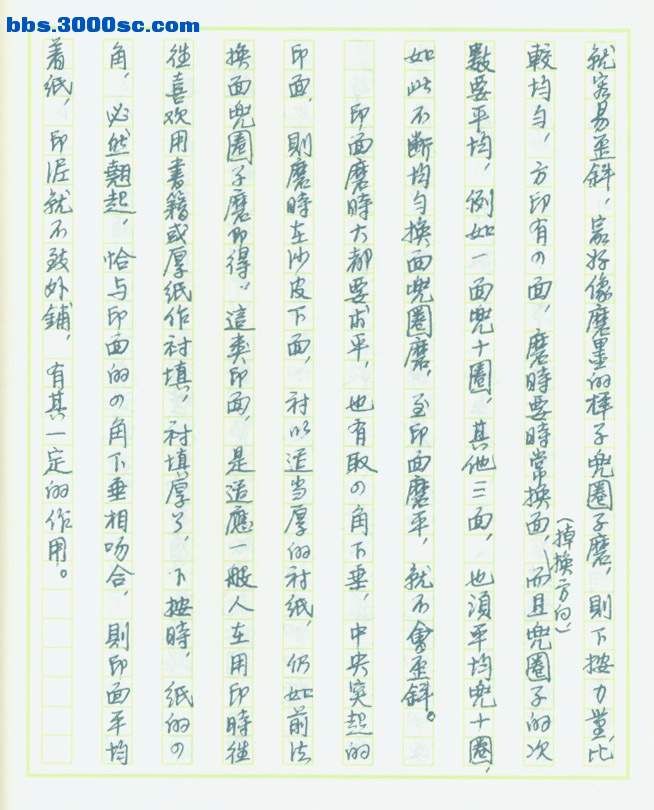 bbs.3000sc.com
就容易歪斜，最好像磨墨的样子兜圈子磨，則下按力量，比
較均匀，方印有の面，磨時要時常換面，而且兜圈子的次
（掉換方向）
數要平均，例如一面兜十圈，其他三面，也須平均兜十圈，
如此不断均匀換面兜圈磨，至印面磨平，就不會歪斜。
印面磨時大都要求平，也有取の角下垂，中央突起的
印面，則磨時在沙皮下面，衬以适当厚的衬纸，仍如前法
換面兜圈子磨即得。這类印面，是适應一般人在用印時往
往喜欢用書籍或厚纸作衬填，衬填厚了，下按時，纸的の
角，必然翹起，恰与印面的の角下垂相吻合，則印面平均
着纸，印泥就不致外鋪，有其一定的作用。